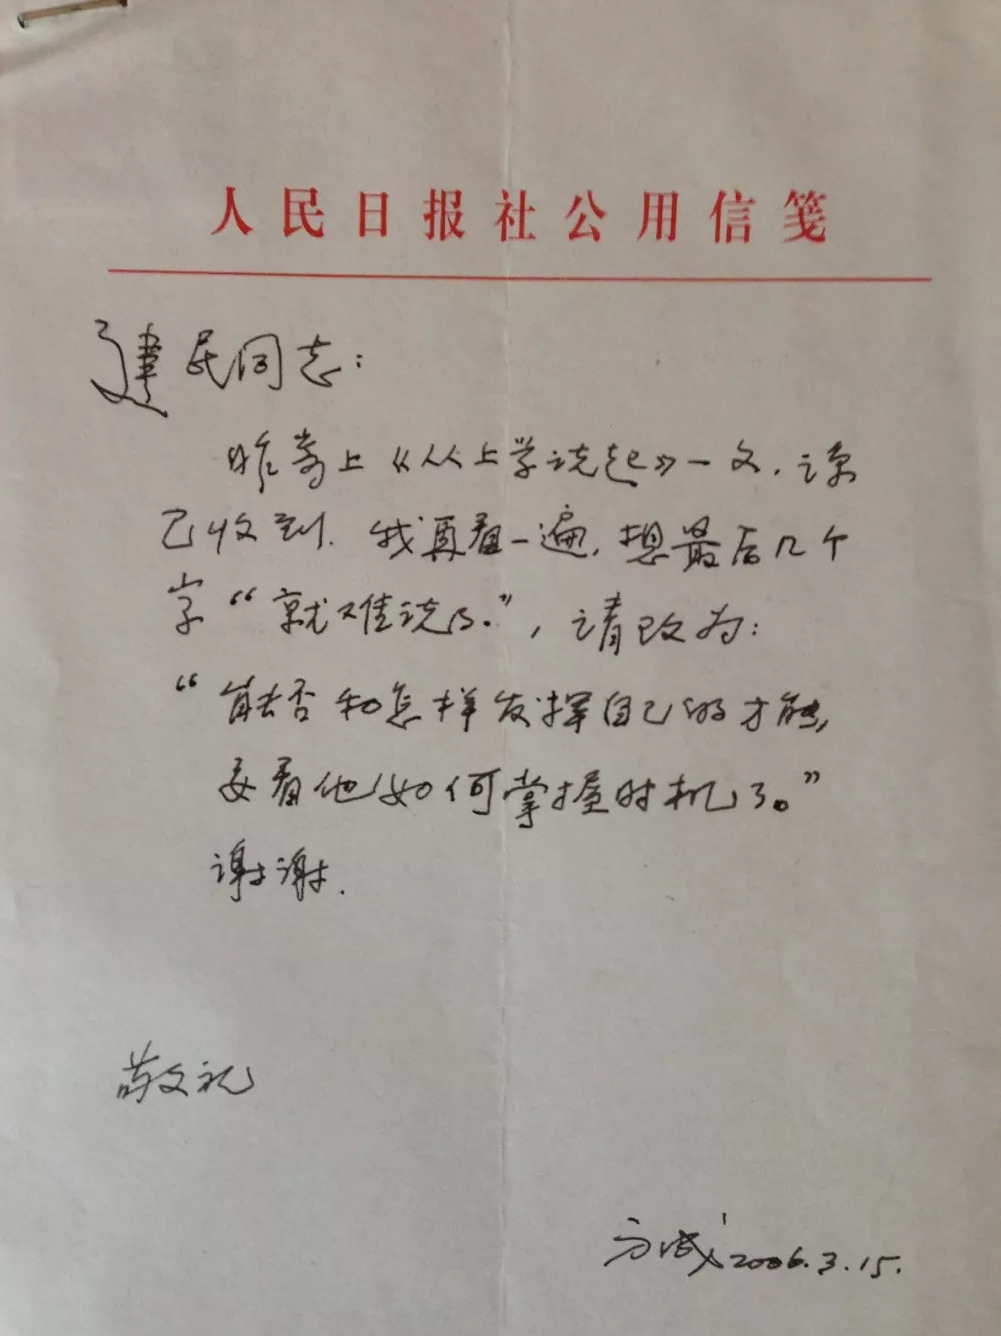 人民日报社公用信笺
建民同志：
昨寄上《从上学说起》一文，谅
已收到。我再看一遍，想最后几个
字“就难说了。”，请改为：
“能否和怎样发挥自己的才能，
要看他如何掌握时机了。”
谢谢.
敬礼
方成 2006.3.15.